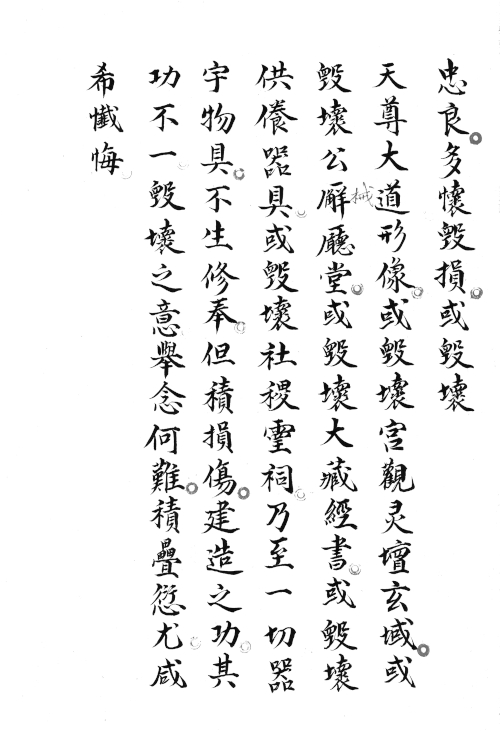 忠良多懷毀損或毀壞
天尊大道形像或毀壞宮觀灵壇玄域或
毀壞公廨廳堂或毀壞大藏經書或毀壞
供養器具或毀壞社稷靈祠乃至一切器
宇物具不生修奉但積損傷建造之功其
功不一毀壞之意舉念何難積疊愆尤咸
希懺悔